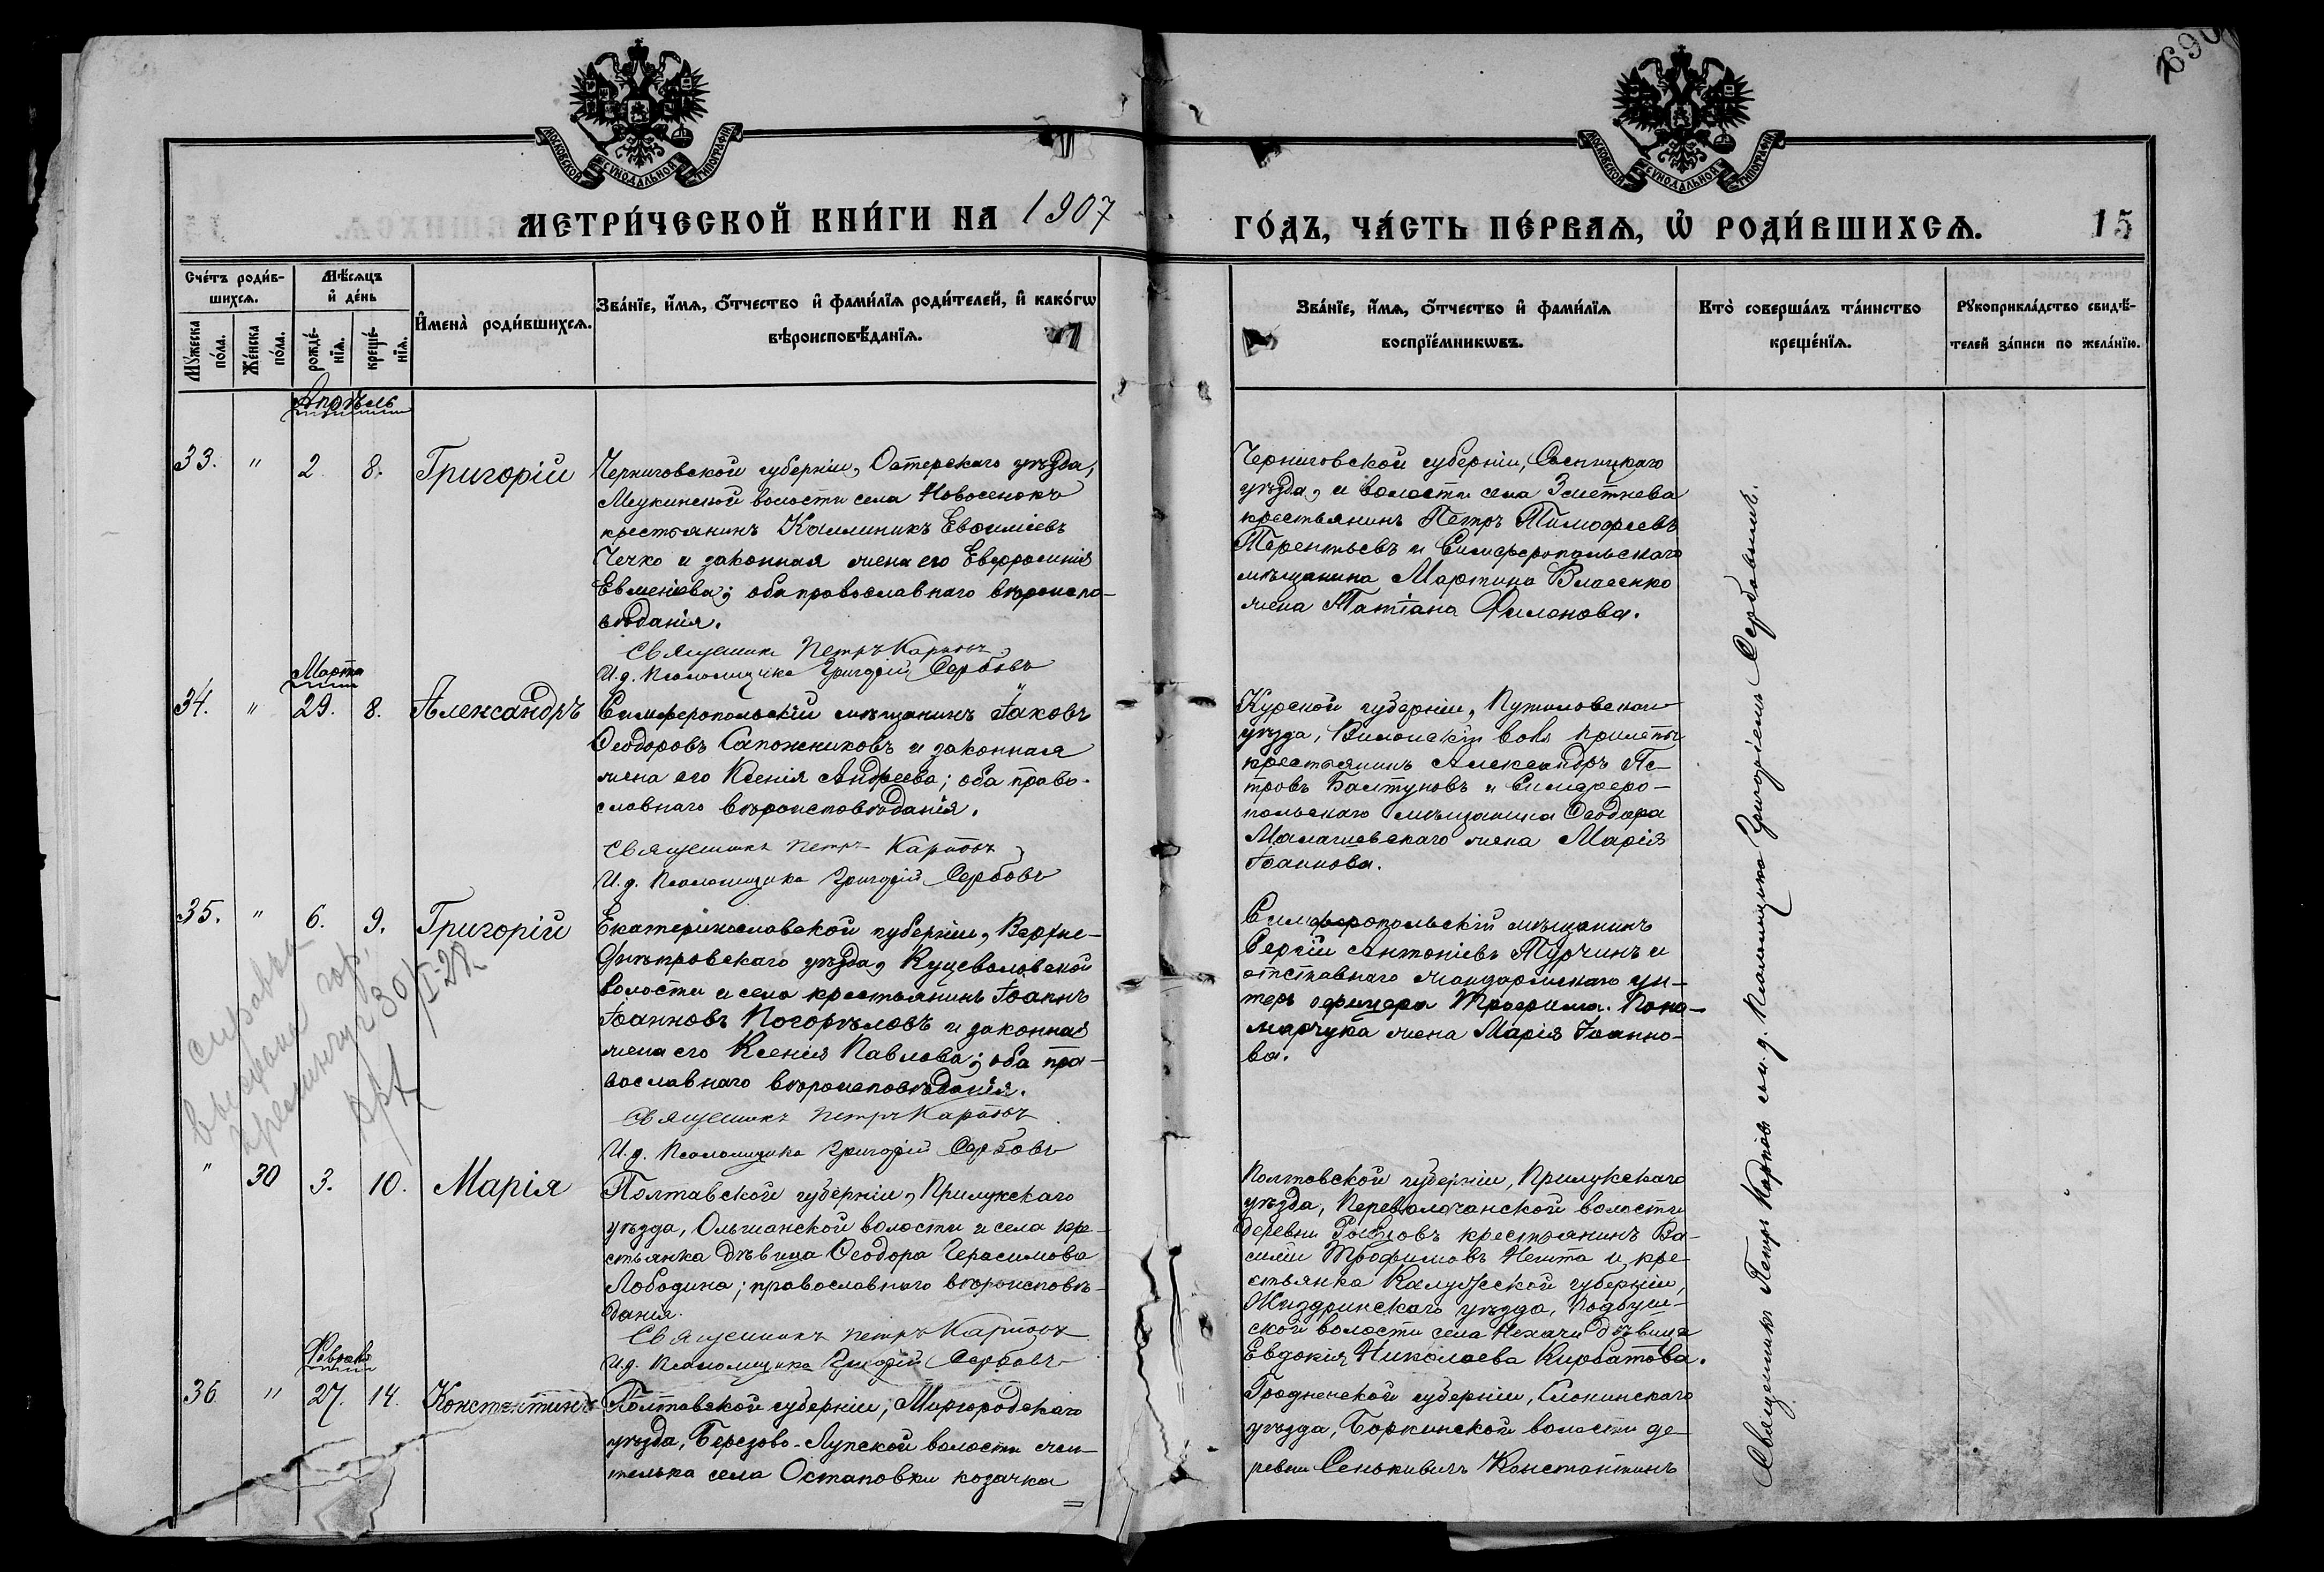 690
МОСКОВСКОЙ СѴНОДАЛЬНОЙ ТИПОГРАФІИ
МОСКОВСКОЙ СѴНОДАЛЬНОЙ ТИПОГРАФІИ
МЕТРИ́ЧЕСКОЙ КНИ́ГИ НА 1907
ГО́ДЪ, ЧА́СТЬ ПЕ́РВАѦ, Ѡ҆ РОДИ́ВШИХСѦ.
15
Сче́тъ роди́в-
шихсѧ.
Мꙋ́жеска
по́ла.
Же́нска
по́ла.
Мѣ́сѧцъ
и҆ де́нь
рожде́-
нїѧ.
креще́-
нїѧ.
И҆мена̀ роди́вшихсѧ.
Зва́нїе, и҆́мѧ, ѻ҆́тчество и҆ фами́лїѧ роди́телей, и҆ како́гѡ
вѣроисповѣ́данїѧ.
Зва́нїе, и҆́мѧ, ѻ҆́тчество и҆ фами́лїѧ
воспрїе́мникѡвъ.
Кто̀ соверша́лъ та́инство
креще́нїѧ.
Рꙋкоприкла́дство свидѣ́-
телей за́писи по жела́нїю.
Апрѣль
33. " 2. 8. Григорій
Черниговской губерніи, Остерскаго уѣзда,
волости села Новоселокъ
крестьянинъ Каллиникъ Евѳиміевъ
Чечко и законная жена его Евфросинія
Евменіева; оба православнаго вѣроиспо-
вѣданія.
Священникъ Петръ Карповъ
И.д. Псаломщика Григорій Сербовъ
Черниговской губерніи, Сосницкаго
уѣзда, и волости села Змѣтнева
крестьянинъ Петръ Тимофеевъ
Терентьевъ и Симферопольскаго
мѣщанина Мартина Власенко
жена Татіана Филонова.
Марта
34. " 29. 8. Александръ
Симферопольскій мѣщанинъ Іаковъ
Ѳеодоровъ Сапожниковъ и законная
жена его Ксенія Андреева; оба право-
славнаго вѣроисповѣданія.
Священникъ Петръ Карповъ
И.д. Псаломщика Григорій Сербовъ
Курской губерніи, Путивловскаго
уѣзда,
крестьянинъ Александръ Пе-
тровъ Балтуновъ и Симферо-
польскаго мѣщанина Ѳеодора
Малашевскаго жена Марія
Іоаннова.
35. " 6. 9. Григорій
Екатеринославской губерніи, Верхне-
днѣпровскаго уѣзда, Куцеваловской
волости и села крестьянинъ Іоаннъ
Іоанновъ Погорѣловъ и законная
жена его Ксенія Павлова; оба пра-
вославнаго вѣроисповѣданія.
Священникъ Петръ Карповъ
И.д. Псаломщика Григорій Сербовъ
Симферопольскій мѣщанинъ
Сергій Антоніевъ Турчинъ и
отставнаго жандармскаго ун-
теръ офицера Трофима Поно-
марчука жена Марія Іоанно-
ва.
справка
30/I-28
" 30 3. 10. Марія
Полтавской губерніи, Прилукскаго
уѣзда, Ольшанской волости и села кре-
стьянка дѣвица Ѳеодора Герасимова
Лободина; православнаго вѣроисповѣ-
данія.
Священникъ Петръ Карповъ
И.д. Псаломщика Григорій Сербовъ
Полтавской губерніи, Прилукскаго
уѣзда, Переволочанской волости
деревни крестьянинъ Ва-
силій Трофимовъ и кре-
стьянка Калужской губерніи,
Жиздринскаго уѣзда, Подбуж-
ской волости села дѣвица
Евдокія Николаева Курбатова.
Февраль
36 " 27. 14. Константинъ
Полтавской губерніи, Миргородскаго
уѣзда, Березово-Лукской волости жи-
телька села Остаповки козачка
Гродненской губерніи, Слонимскаго
уѣзда, Боркинской волости де-
ревни Сенькивичъ Константинъ
Священникъ Петръ Карповъ съ и.д. Псаломщика Григоріемъ Сербовымъ.